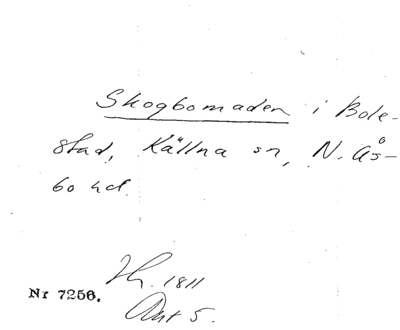 Skogbomaden i Bole-
stad, Källna sn, N. Ås-
bo hd.
Nr 7256.
1811
Akt 5.